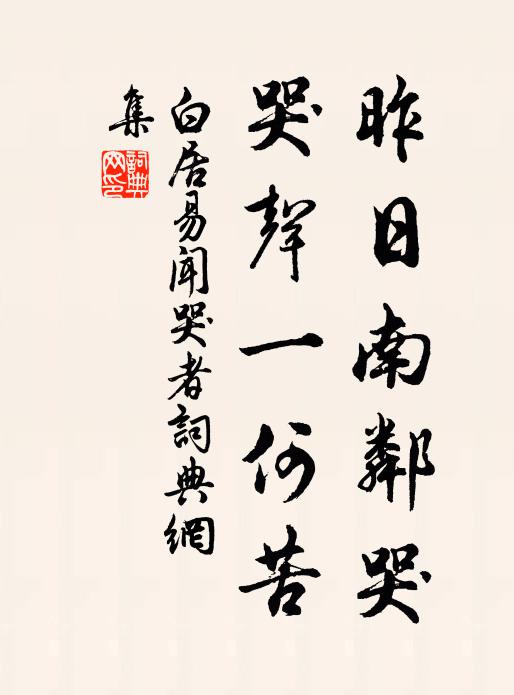 昨日南鄰哭
哭聲一何苦
白居易聞哭者詞典網
集
詞典網印